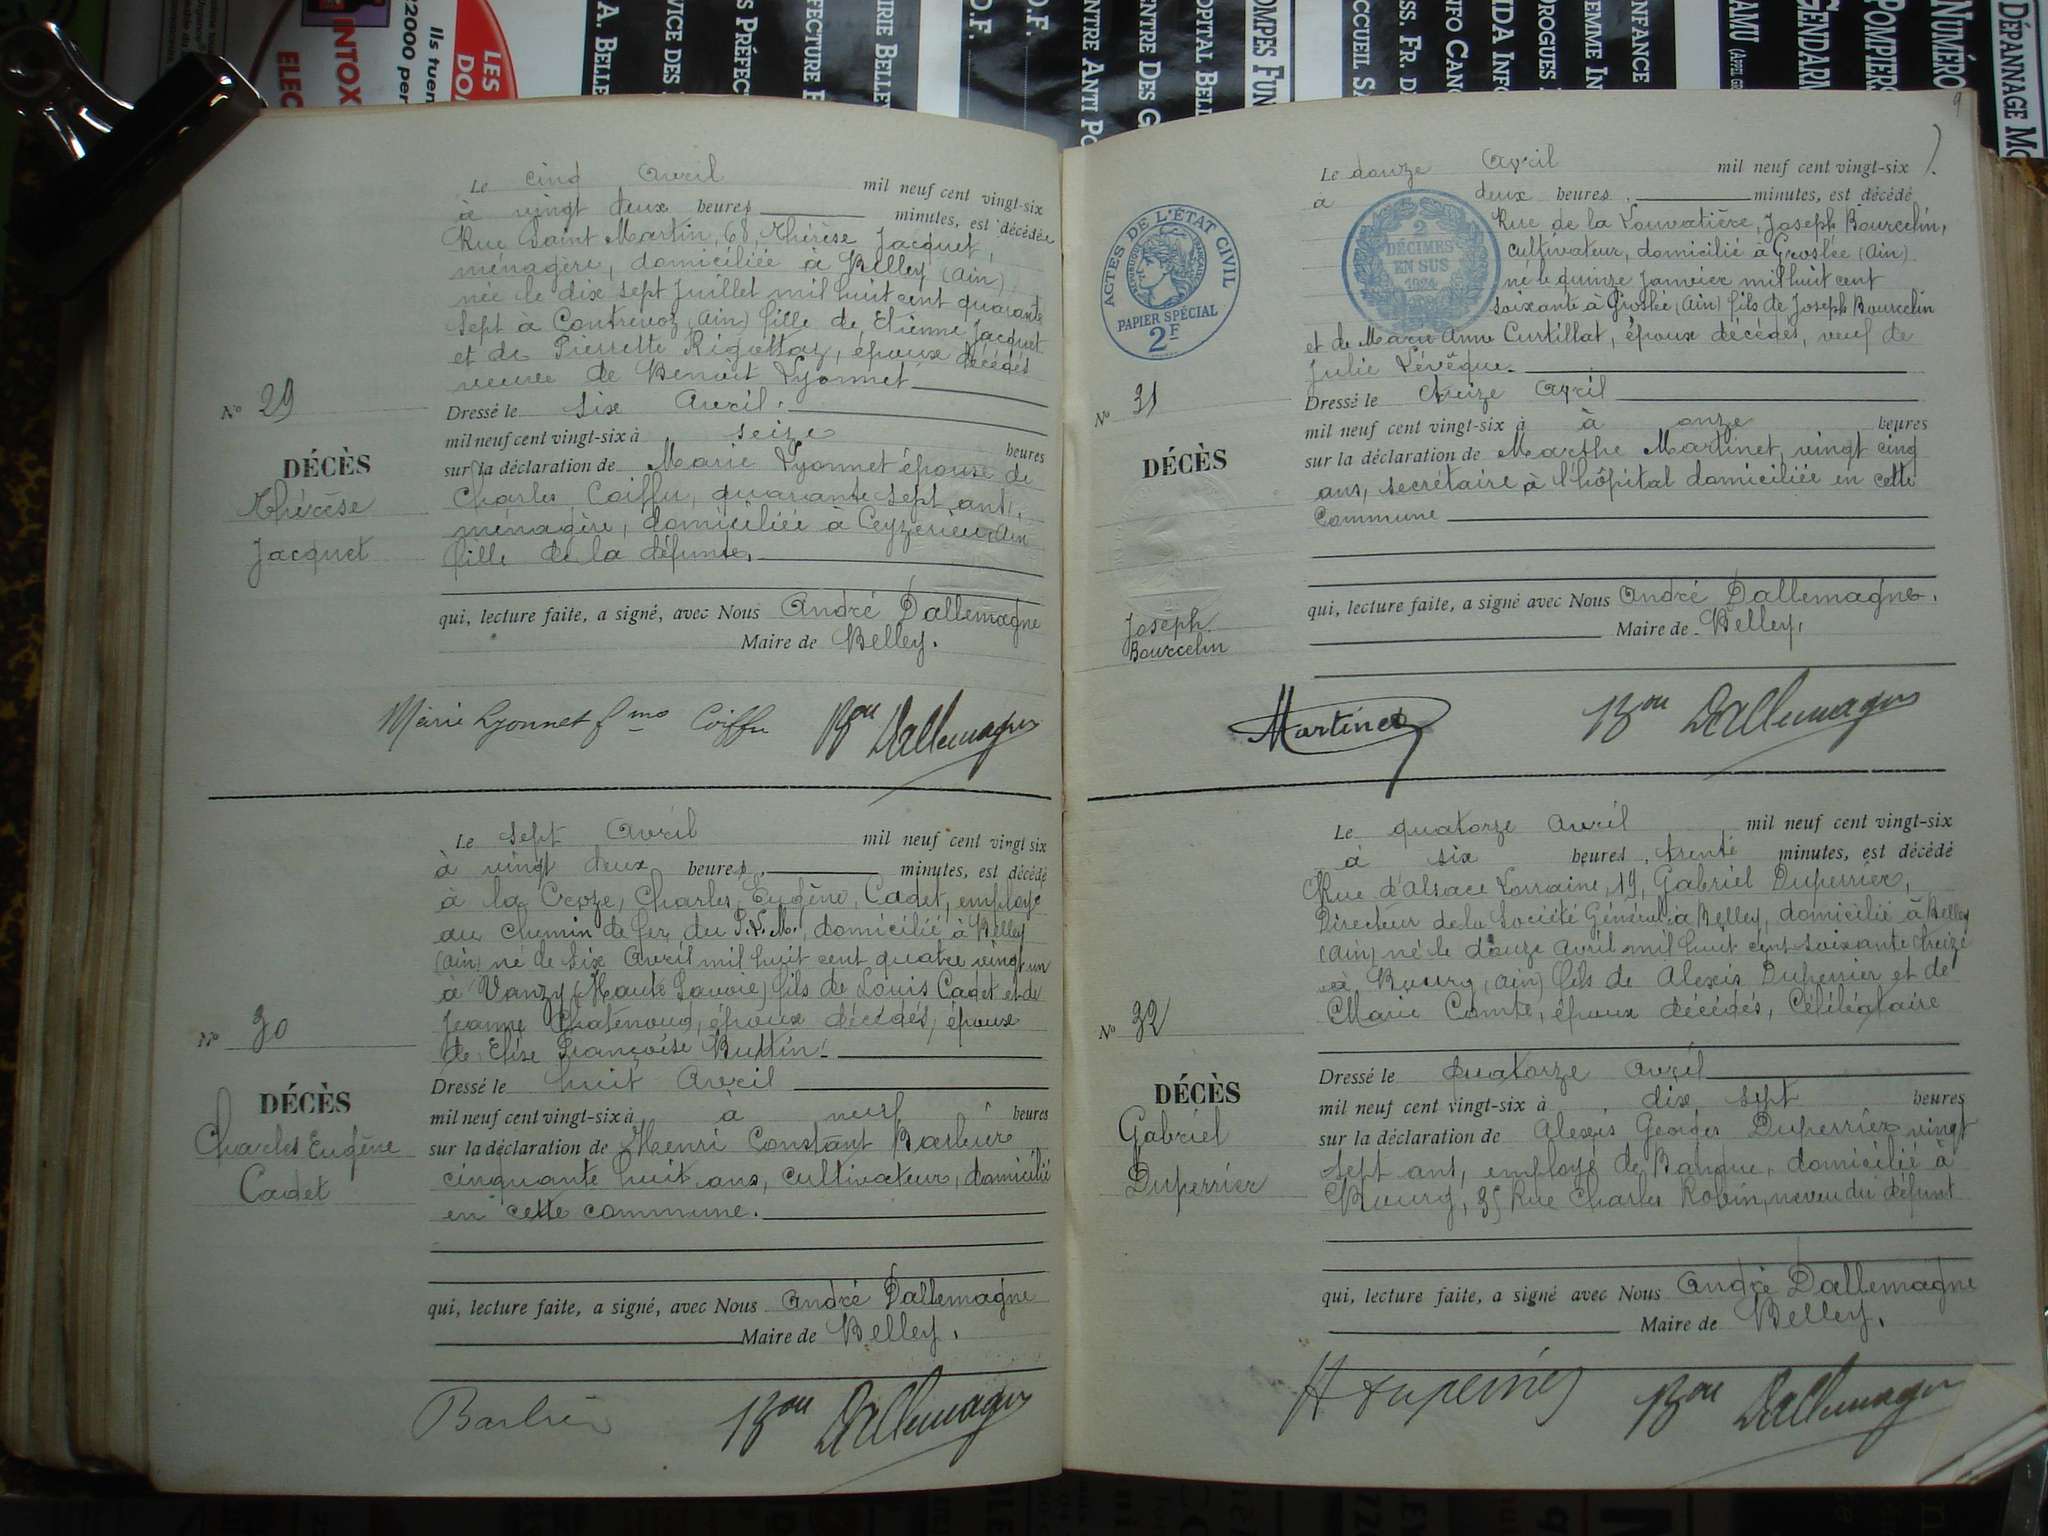 LES
DO
Ils tuen
2000 per
INTOX
ELEC
A. BELLE
VICE DES
S PRÉFECT
FECTURE
IRIE BELLEY
D.F.
D.F.
ENTRE ANTI PO
ENTRE DES G
OPITAL BELL
OMPES FUN
CCUEIL SA
SS. FR. D
NFO CANC
IDA INFO
DROGUES
EMME IN
NFANCE
AMU (APPEL G
GENDARM
POMPIERS
NUMÉRO
DÉPANNAGE MO
Le cinq Avril mil neuf cent vingt-six
à vingt deux heures minutes, est décédée
Rue Saint Martin, 68, Thérèse Jacquet,
ménagère, domiciliée à Belley (Ain)
née le dix sept Juillet mil huit cent quarante
sept à Contrevoz (Ain) fille de Etienne Jacquet
et de Pierrette Rigollaz, époux décédés
veuve de Benoit Lyonnet
Nº 29
DÉCÈS
Thérèse
Jacquet
Dressé le six Avril.
mil neuf cent vingt-six à seize heures
sur la déclaration de Marie Lyonnet épouse de
Charles Coiffu, quarante sept ans,
ménagère, domiciliée à Ceyzerieu Ain
fille de la défunte.
qui, lecture faite, a signé, avec Nous André Dallemagne
Maire de Belley.
Marie Lyonnet fme Coiffu Bon Dallemagne
Le sept Avril mil neuf cent vingt six
à vingt deux heures, minutes, est décédé
à la Croze, Charles, Eugène, Cadet, employé
au chemin de fer du P.L.M., domicilié à Belley
(Ain) né le six Avril mil huit cent quatre vingt un
à Vanzy (Haute Savoie) fils de Louis Cadet et de
Jeanne Chatenoud, époux décédés, époux
de Elise Françoise Buttin.
Nº 30
DÉCÈS
Charles Eugène
Cadet
Dressé le huit Avril
mil neuf cent vingt-six à à neuf heures
sur la déclaration de Henri Constant Barbier
cinquante huit ans, cultivateur, domicilié
en cette commune.
qui, lecture faite, a signé, avec Nous André Dallemagne
Maire de Belley.
Barbier Bon Dallemagne
9
Le douze Avril mil neuf cent vingt-six
a deux heures minutes, est décédé
Rue de la Louvatière, Joseph Bourcelin,
cultivateur, domicilié à Groslée (Ain)
né le quinze Janvier mil huit cent
soixante à Groslée (Ain) fils de Joseph Bourcelin
et de Marie Anne Curtillat, époux décédés, veuf de
Julie Lévêque.
ACTES DE L'ÉTAT CIVIL
PAPIER SPÉCIAL
2F
2
DÉCIMES
EN SUS
1924
Nº 31
DÉCÈS
Joseph
Bourcelin
Dressé le treize Avril
mil neuf cent vingt-six à à onze heures
sur la déclaration de Marthe Martinet, vingt cinq
ans, secrétaire à l'hôpital domiciliée en cette
Commune
qui, lecture faite, a signé, avec Nous André Dallemagne.
Maire de Belley.
Martinet Bon Dallemagne
Le quatorze Avril mil neuf cent vingt-six
à six heures, trente minutes, est décédé
Rue d'Alsace Lorraine, 19, Gabriel Duperrier,
Directeur de la Société Générale à Belley, domicilié à Belley
(Ain) né le douze Avril mil huit cent soixante treize
à Bourg (Ain) fils de Alexis Duperrier et de
Marie Comte, époux décédés, Célibataire
Nº 32
DÉCÈS
Gabriel
Duperrier
Dressé le quatorze Avril
mil neuf cent vingt-six à dix sept heures
sur la déclaration de Alexis Georges Duperrier vingt
sept ans, employé de Banque, domicilié à
Bourg, 35 Rue Charles Robin, neveu du défunt
qui, lecture faite, a signé avec Nous André Dallemagne
Maire de Belley.
Duperrier Bon Dallemagne